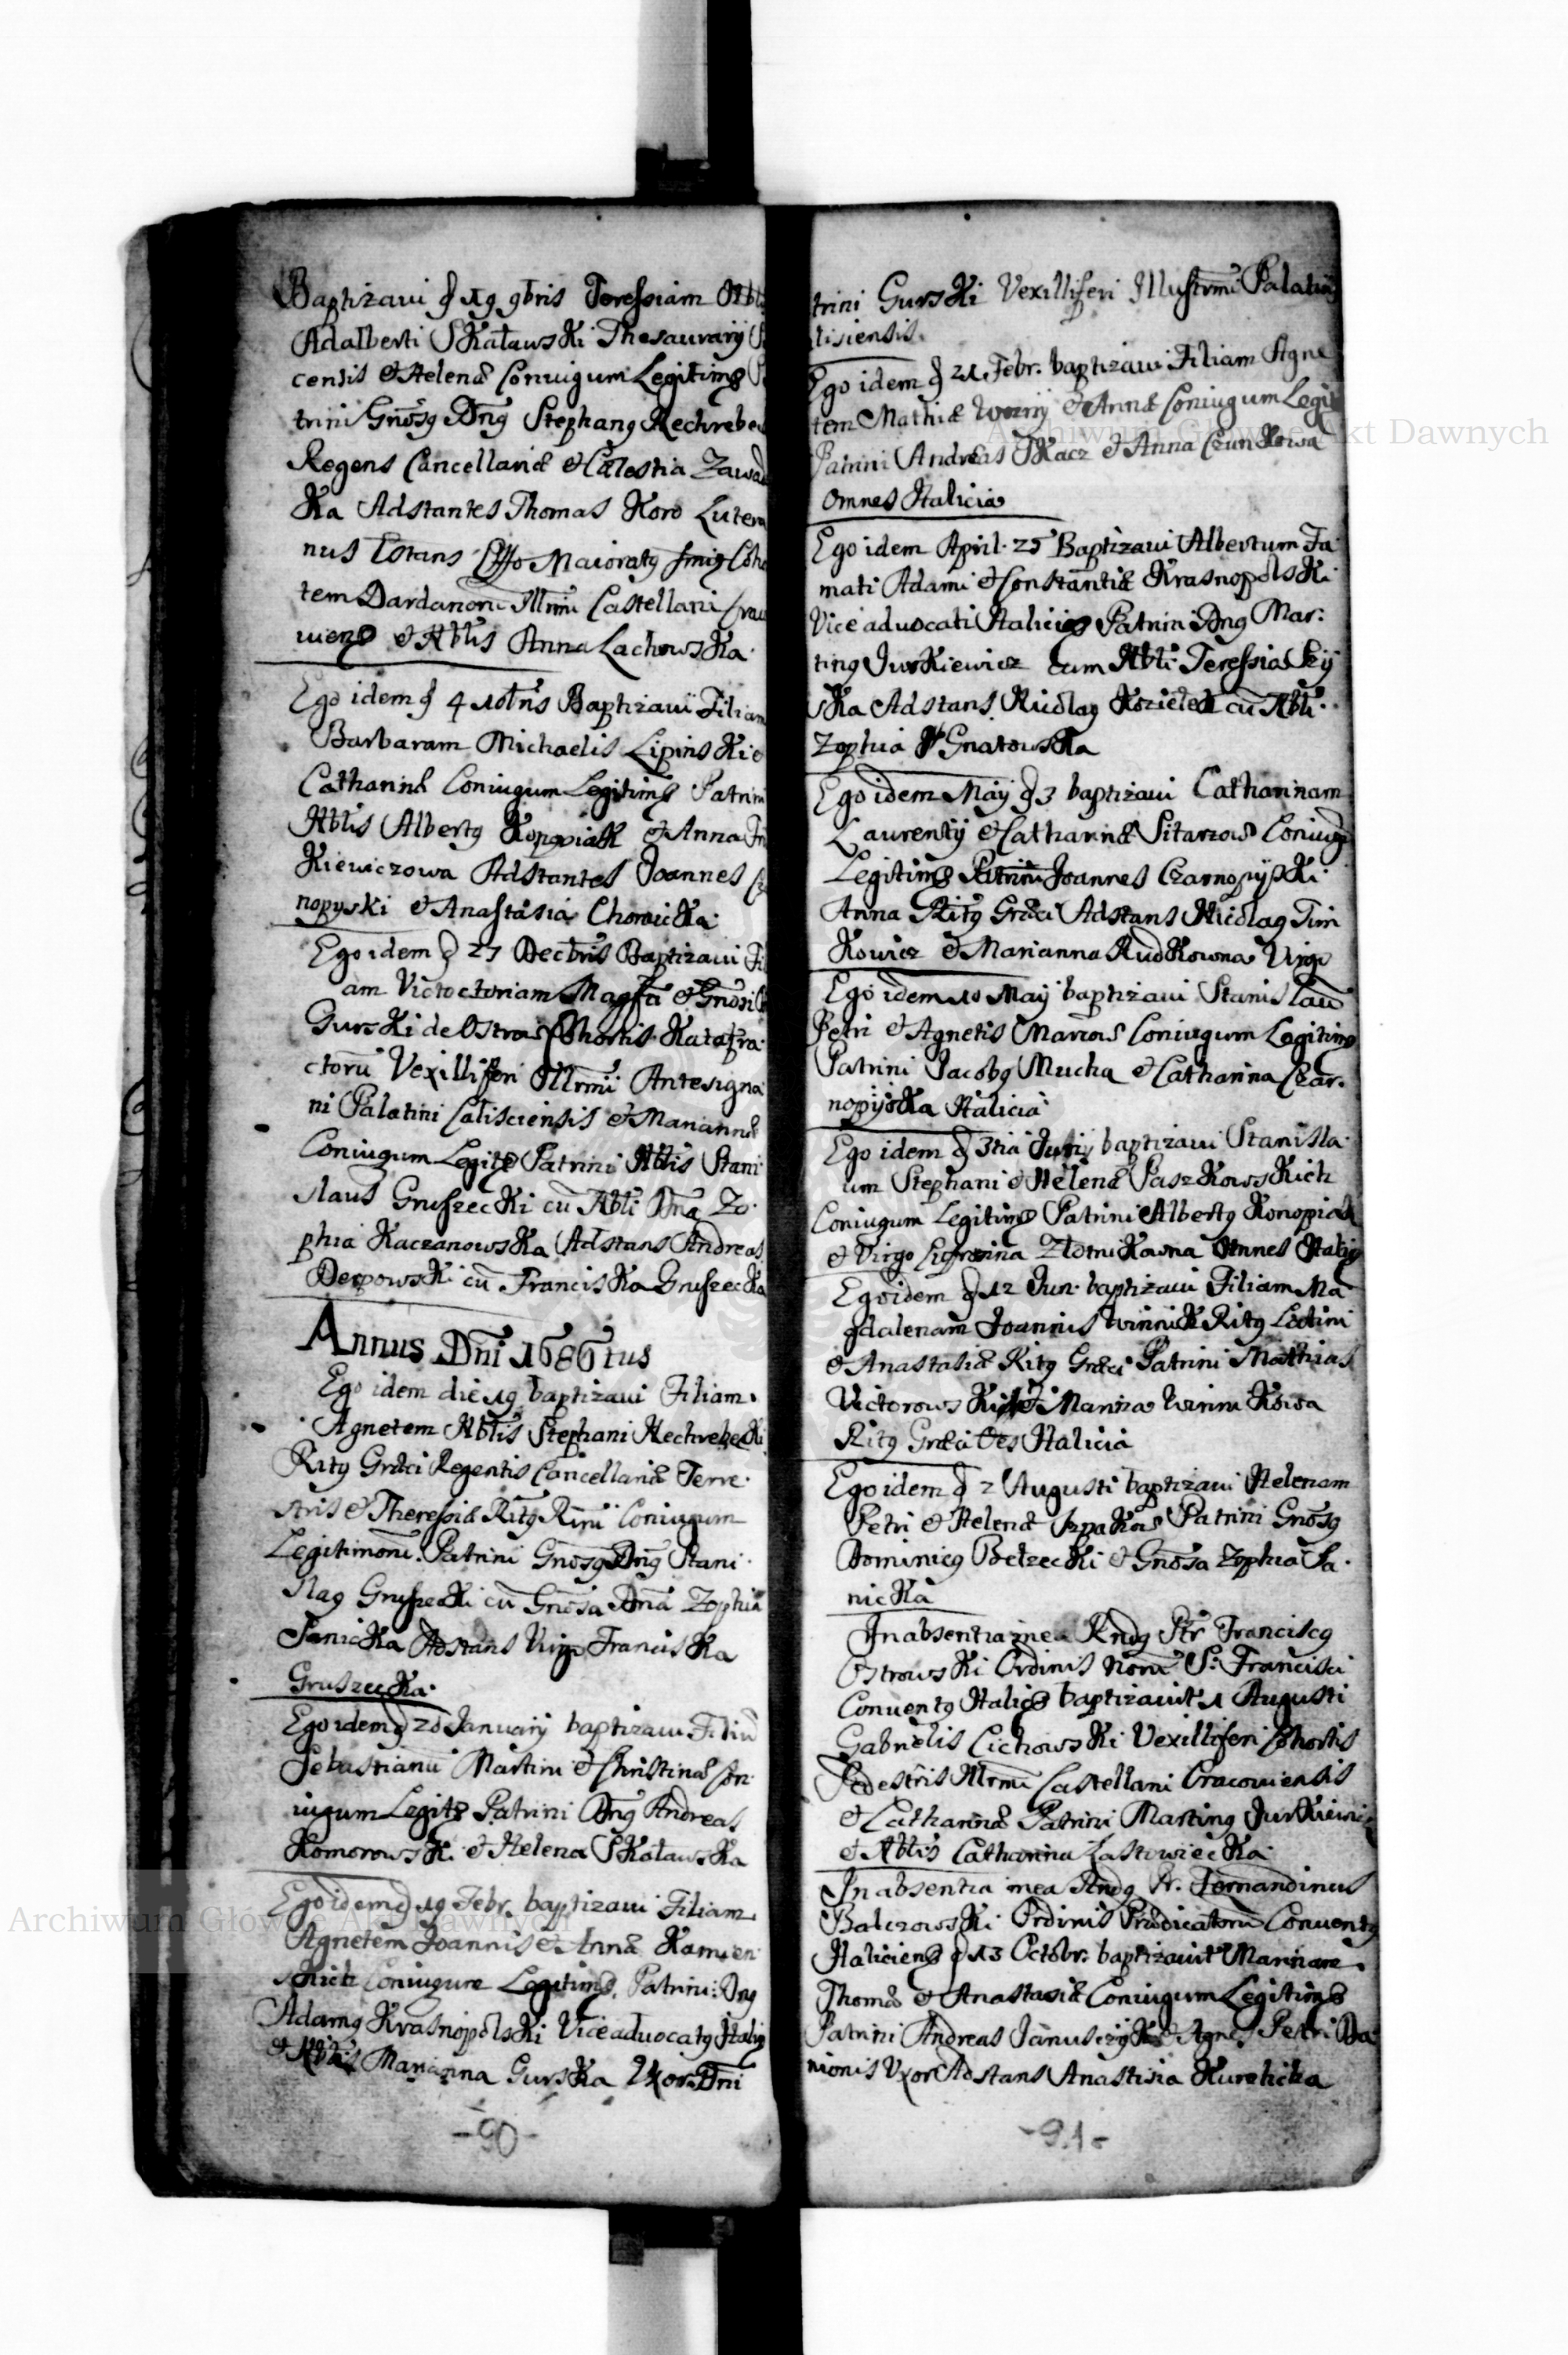 Baptizavi d 19 9bris Teressiam Nbl
Adalberti Skaławski Thesaurarij
censis et Helenæ Coniugum Legitimo
trini Gnosus Dnus Stephanus Hechreb
Regens Cancellariæ et Cælestia Zawad
ka Adstantes Thomas Koro Lutera
nus Extans Offo Maioratus
tem Dardanoru Illrmi Castellani Crac
uiens et Nblis Anna Lachowska
Ego idem d 4 10bris Baptizavi Filiam
Barbaram Michaelis Lipinski et
Catharinæ Coniugum Legitims Patrini
Nblis Albertus Konopiak et Anna
kiewiczowa Adstantes Joannes Cz
nopyski et Anastasia Chomicka
Ego idem d 27 Decbris Baptizavi Fil
am Victoctoriam Magfci et Gnosi
Gurski de Ostrow Cohortis Katafra
ctoru Vexilliferi Illrmi Antesigna
ni Palatini Calisciensis et Mariannæ
Coniugum Legits Patrini Nblis Stani
slaus Gruszecki cu Nbli Dna Zo
phia Kaczanowska Adstans Andreas
Derpowski cu Franciska Gruszecka
Annus Dni 1686tus
Ego idem die 19 baptizavi Filiam
Agnetem Nblis Stephani Hechrebecki
Ritus Græci Regentis Cancellariæ Terre
stris et Theressiæ Ritus Rmi Coniugum
Legitimoru. Patrini Gnosus Dnus Stani
slaus Gruszecki cu Gnosa Dna Zophia
Sanicka Adstans Virgo Franciska
Gruszecka
Ego idem d 20 January baptizavi Filiu
Sebastianu Martini et Christinæ Con
iugum Legits Patrini Dnus Andreas
Komorowski et Helena Skaławska
Ego idem d 19 Febr. baptizavi Filiam
Agnetem Joannis et Annæ Kamien
skich Coniugum Legitims Patrini Dnus
Adamus Krasnopolski Viceadvocatus Halici
et Nblis Marianna Gurska Uxor Dni
-90-
trini Gurski Vexilliferi Illustrmi Palatini
lisiensis.
Ego idem d 21 Febr. baptizavi Filiam Agne
tem Mathiæ Wozny et Annæ Coniugum Legit
Patrini Andreas Tkacz et Anna Czunkowa
omnes Halicia
Ego idem April. 25 Baptizavi Albertum Fa
mati Adami et Constantiæ Krasnopolski
Vice advocati Haliciens Patrini Dnus Mar
tinus Jurkiewicz cum Nbli Teressia
ska Adstans Nicolaus Koziełek cu Nbli
Zophia Gnatowska
Ego idem May d 3 baptizavi Catharinam
Laurentij et Catharinæ Sitarzow Coniug
Legitims Patrini Joannes Czarnopijski
Anna Ritus Græci Adstans Nicolaus Tim
kowicz et Marianna Rudkowna Virgo
Ego idem 10 May baptizavi Stanislau
Petri et Agnetis Coniugum Legitims
Patrini Jacobus Mucha et Catharina Czar
nopijska Halicia
Ego idem d 3tia Junij baptizavi Stanisla
um Stephani et Helenæ Paszkowskich
Coniugum Legitims Patrini Albertus Konopiak
et Virgo Eufrozina Złotnikowna Omnes Halicia
Ego idem d 12 Jun. baptizavi Filiam Ma
gdalenam Joannis Winnik Ritus Latini
et Anastasiæ Ritus Græci Patrini Mathias
Victorowski et Marina Winnikowa
Ritus Græci Oes Halicia
Ego idem d 2 Augusti baptizavi Helenam
Petri et Helenæ Szpakow Patrini Gnosus
Dominicus Bełzecki et Gnosa Zophia Sa
nicka
In absentia mea Rndus Ptr Franciscus
Ostrowski Ordinis S: Francisci
Conventus Halics baptizavit 1 Augusti
Gabrielis Cichowski Vexilliferi Cohortis
Pedestris Illrmi Castellani Cracoviensis
et Catharinæ Patrini Martinus Jurkiewi
et Nblis Catharina Łastowiecka
In absentia mea Rndus Pr. Fernandinus
Balczowski Ordinis Prædicatoru Conventus
Haliciens d 13 Octobr. baptizavit Marinam
Thomæ et Anastasiæ Coniugum Legitims
Patrini Andreas Januszijk et Agnes Petri Da
nionis Uxor Adstans Anastisia Kurelicka
-91-